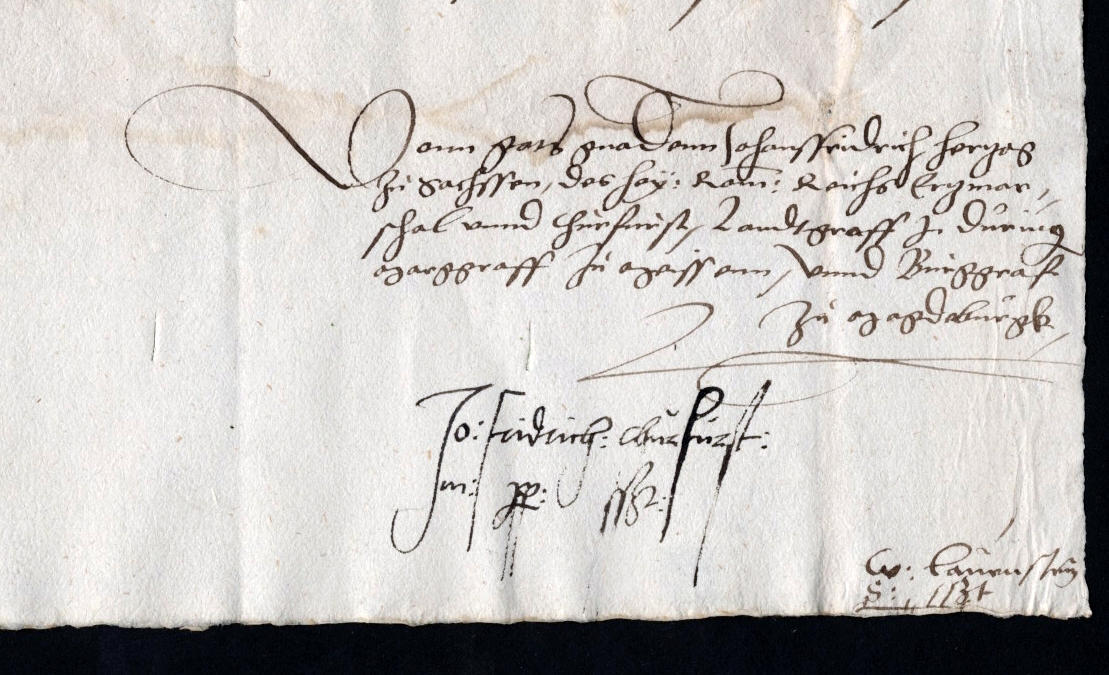 Vonn gots gnadenn Johansfridrich hertzog
zu Sachssen, des hey: Rom: Reichs Ertzmar„
schal vnnd Churfurst, Landtgraff In During
Marggraff zu Meissenn, vnnd Burggraff
zu Magdeburgk,
Jo: fridrich: Churfurst:
m: pp: sszt:
W: Lauenstein
S: sszt